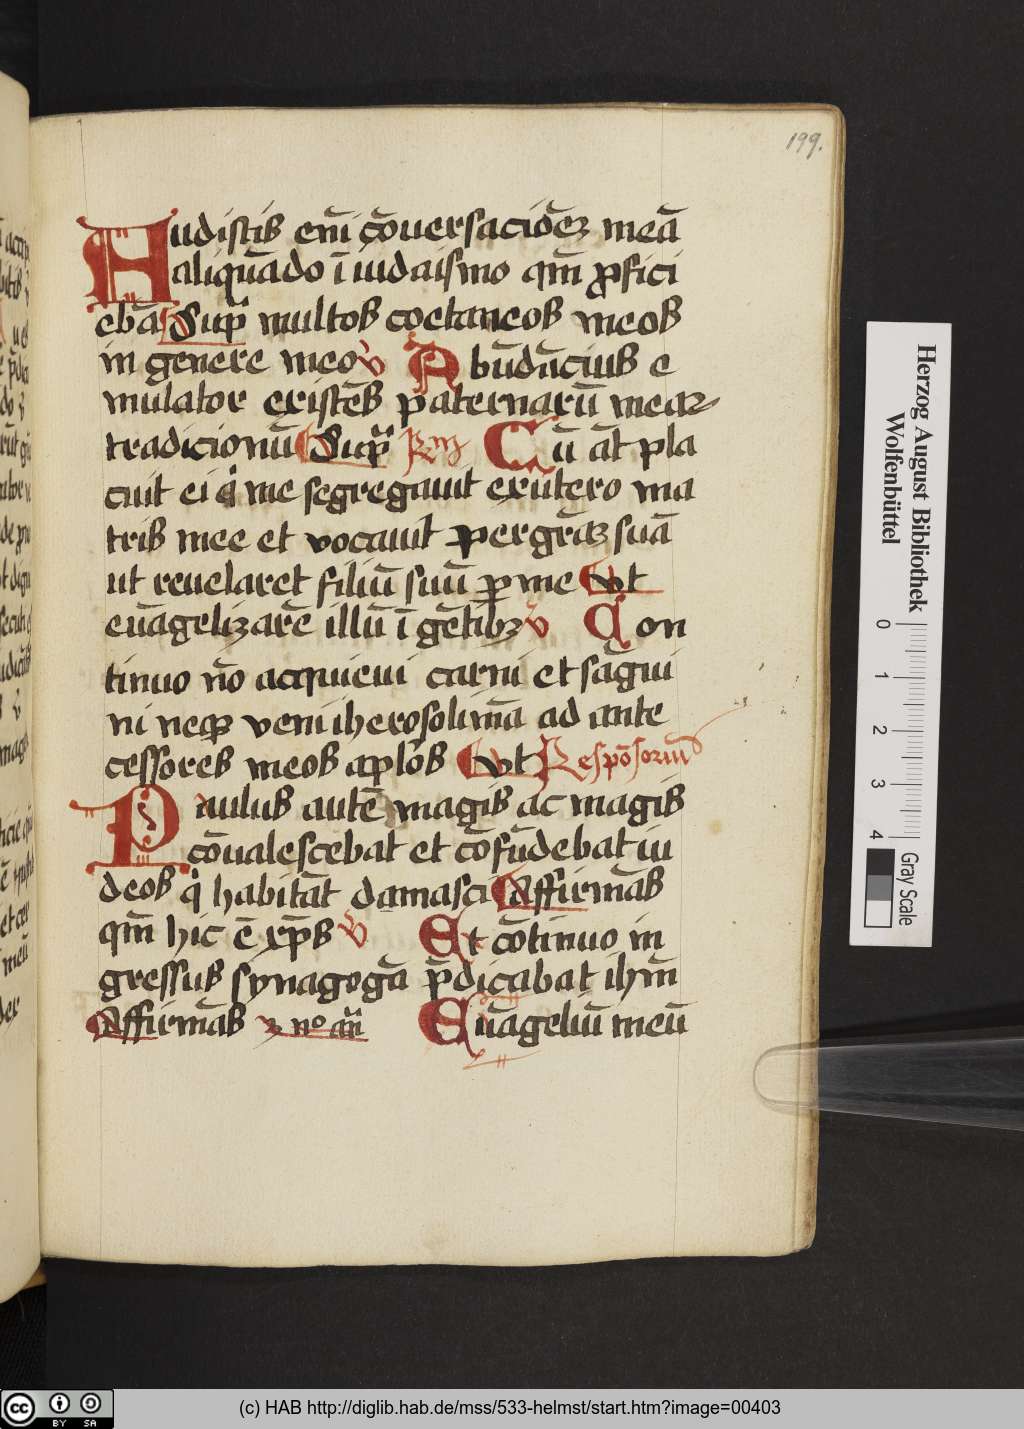 199.
Audistis em̄ c̄ouersacioē₃ meā
aliquādo ī iudaismo qm̄ ꝓfici
ebā Sup̄ multos coetaneos meos
in genere meo v̄ Abūdāciꝰ e
mulator existēs paternarū mear
tradicionū Sup̄ Rm̄ Cū āt pla
cuit ei q̇ me segregauit ex ūtero ma
tris mee et vocauit per grā₃ suā
ut reuelaret filiū suū ꝑ me Vt
euāgelizarē illū ī gētib₃ v̄ Con
tinuo nō acquieui carni et sāgui
ni neq₃ veni iherosolimā ad ante
cessores meos aplōs Vt Respōsoriū
Paulus autē magis ac magis
cōualescebat et cōfūdebat iu
deos q̇ habitāt damasci Affirmās
qm̄ hic ē xp̄s v̄ Et cōtinuo in
gressus synagogā p̄dicabat ihm̄
Affirmās Euāgeliū meū
Herzog August Bibliothek
Wolfenbüttel
0 1 2 3 4
Gray Scale
cc BY SA
(c) HAB http://diglib.hab.de/mss/533-helmst/start.htm?image=00403